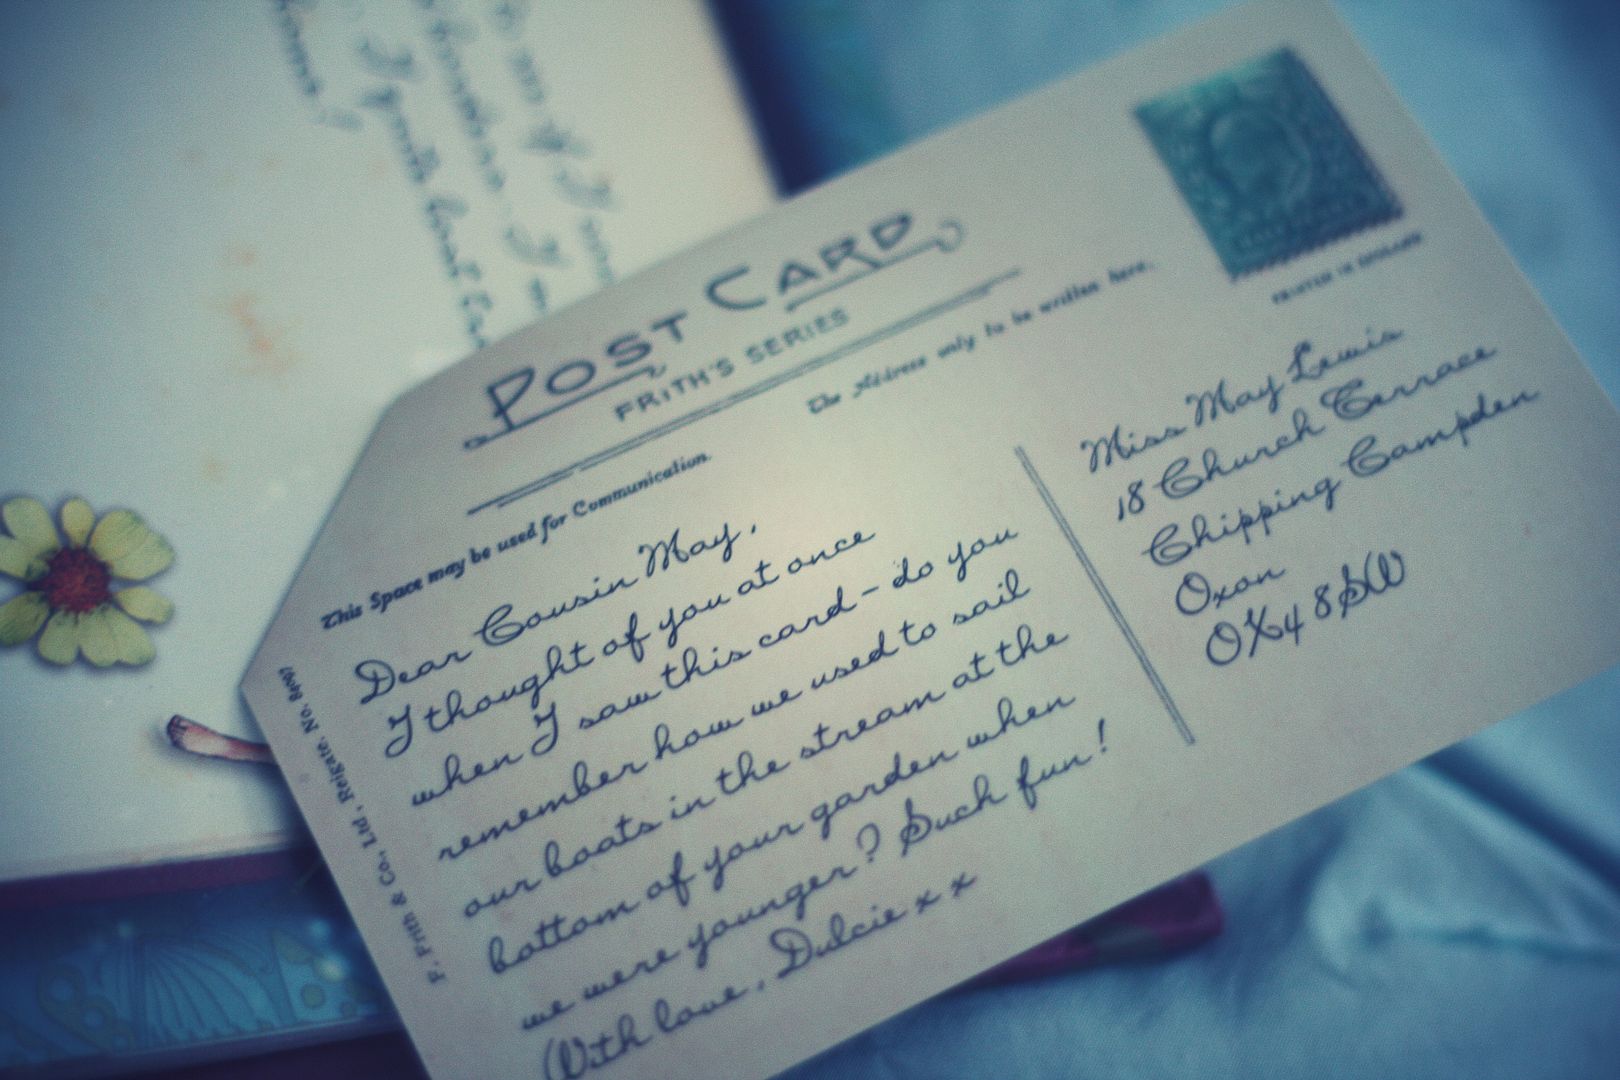 POST CARD
FRITH'S SERIES
This Space may be used for Communication.
The Address only to be written here.
PRINTED IN ENGLAND
Dear Cousin May,
I thought of you at once
when I saw this card - do you
remember how we used to sail
our boats in the stream at the
bottom of your garden when
we were younger? Such fun!
With love, Dulcie x x
Miss May Lewis
18 Church Terrace
Chipping Campden
Oxon
OX4 8SW
F. Frith & Co., Ltd., Reigate. No.